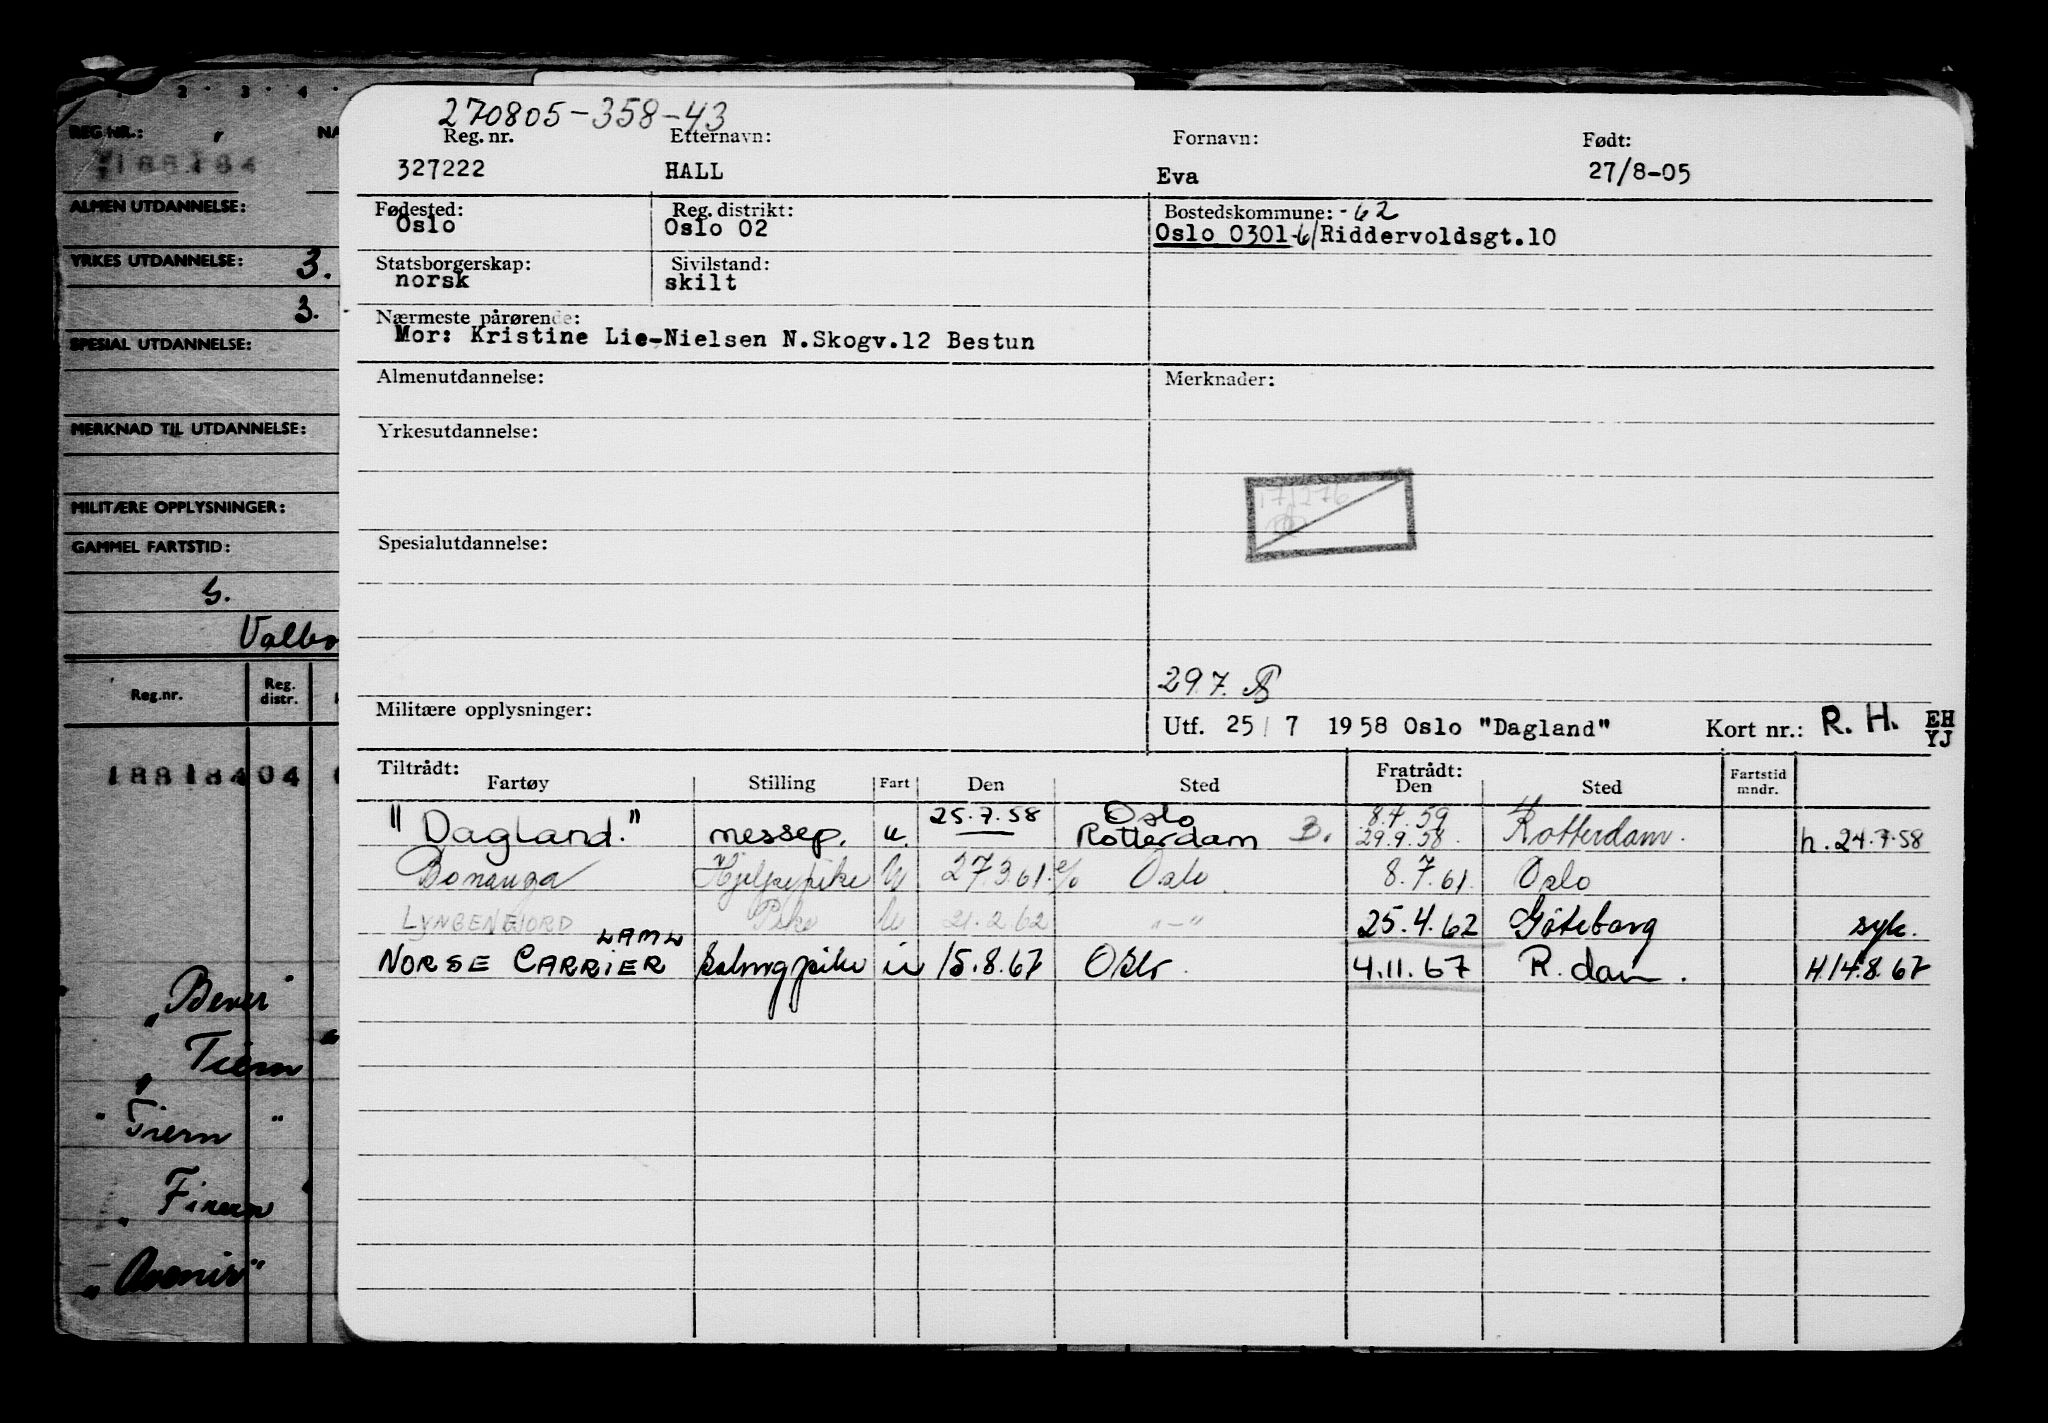 1 · 2 · 3 · 4 ·
REG NR.: NA
188184
ALMEN UTDANNELSE:
YRKES UTDANNELSE: 3.
3.
SPESIAL UTDANNELSE:
MERKNAD TIL UTDANNELSE:
MILITÆRE OPPLYSNINGER:
GAMMEL FARTSTID:
Valbo
Reg.nr. Reg. distr.
188184 04
"Bever"
"Fiern"
"Fiern"
"Fiern"
"Avenir"
270805-358-43
Reg. nr. Etternavn: Fornavn: Født:
327222 HALL Eva 27/8-05
Fødested: Reg. distrikt: Bostedskommune: -62
Oslo Oslo 02 Oslo 0301-6/Riddervoldsgt.10
Statsborgerskap: Sivilstand:
norsk skilt
Nærmeste pårørende:
Mor: Kristine Lie-Nielsen N.Skogv.12 Bestun
Almenutdannelse: Merknader:
Yrkesutdannelse:
Spesialutdannelse:
297.
Militære opplysninger: Utf. 25/7 1958 Oslo "Dagland" Kort nr.: R. H. EH
YJ
Tiltrådt: Fratrådt: Fartstid mndr.
Fartøy Stilling Fart Den Sted Den Sted
25.7.58 Oslo 8.7.59
"Dagland." messep. u. Rotterdam 3. 29.9.58. Rotterdam. h. 24.7.58
Bonanza Hjelpepike U 27.3.61. Oslo. 8.7.61. Oslo
LYNGENFJORD Pike U 21.2.62 -"- 25.4.62 Göteborg syk.
LAML
NORSE CARRIER salongpike u 15.8.67 Oslo. 4.11.67 R.dam. H.14.8.67